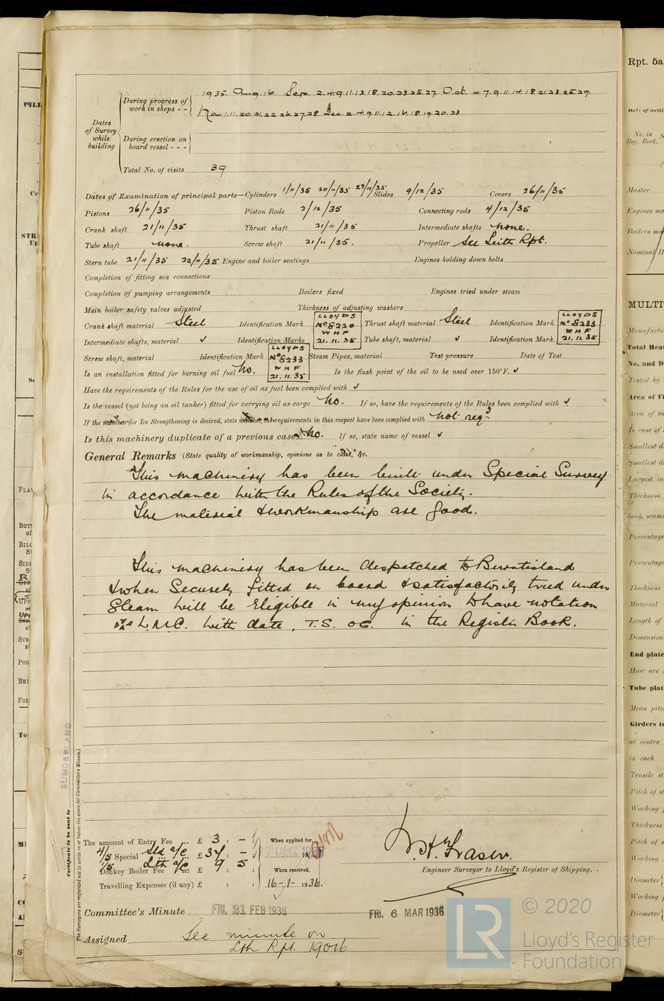 1935. Aug. 16. Sep. 2. 4. 9. 11. 13. 18. 20. 23. 25. 27. Oct. 4. 7. 9. 11. 14. 18. 21. 23. 25. 29.
Dates of Survey while building
During progress of work in shops - -
Nov. 1. 11. 20. 21. 22. 26. 27. 28. Dec. 2. 4. 9. 11. 12. 16. 18. 19. 20. 23
During erection on board vessel - - -
Total No. of visits 39
Dates of Examination of principal parts—Cylinders 1/11/35 20/11/35 27/11/35 Slides 9/12/35 Covers 26/11/35
Pistons 26/11/35 Piston Rods 2/12/35 Connecting rods 4/12/35
Crank shaft 21/11/35 Thrust shaft 21/11/35 Intermediate shafts none.
Tube shaft none. Screw shaft 21/11/35. Propeller See Leith Rpt.
Stern tube 21/11/35 22/11/35 Engine and boiler seatings Engines holding down bolts
Completion of fitting sea connections
Completion of pumping arrangements Boilers fixed Engines tried under steam
Main boiler safety valves adjusted Thickness of adjusting washers
Crank shaft material Steel Identification Mark LLOYDS No 8220 WHF 21.11.35 Thrust shaft material Steel Identification Mark LLOYDS No 8233 WHF 21.11.35
Intermediate shafts, material ✓ Identification Marks Tube shaft, material ✓ Identification Mark
Screw shaft, material Identification Mark LLOYDS No 8233 WHF 21.11.35 Steam Pipes, material Test pressure Date of Test
Is an installation fitted for burning oil fuel No. Is the flash point of the oil to be used over 150°F. ✓
Have the requirements of the Rules for the use of oil as fuel been complied with ✓
Is the vessel (not being an oil tanker) fitted for carrying oil as cargo No. If so, have the requirements of the Rules been complied with ✓
If the for Ice Strengthening is desired, state requirements in this respect have been complied with not reqd.
Is this machinery duplicate of a previous case No. If so, state name of vessel ✓
General Remarks (State quality of workmanship, opinions as to class, &c.
This machinery has been built under Special Survey
in accordance with the Rules of the Society.
The material & workmanship are good.
This machinery has been despatched to Burntisland
& when securely fitted on board & satisfactorily tried under
Steam will be Eligible in my opinion to have notation
L.M.C. with date, T.S. O.G. in the Register Book.
SUNDERLAND
Certificate to be sent to
(The Surveyors are requested not to write on or below the space for Committee's Minute.)
The amount of Entry Fee ... £ 3 : - : When applied for,
4/5 Special Sld a/c £ 34 : - :
1/5 Lth a/c
Donkey Boiler Fee ... £ 9 : 5 : When received,
Travelling Expenses (if any) £ : : 16-1-1936.
W. H. Fraser.
Engineer Surveyor to Lloyd's Register of Shipping.
Committee's Minute FRI. 21 FEB 1936 FRI. 6 MAR 1936
Assigned See minute on
Lth Rpt. 19016
© 2020
LR
Lloyd's Register
Foundation
Rpt. 5a
Master
MULTI